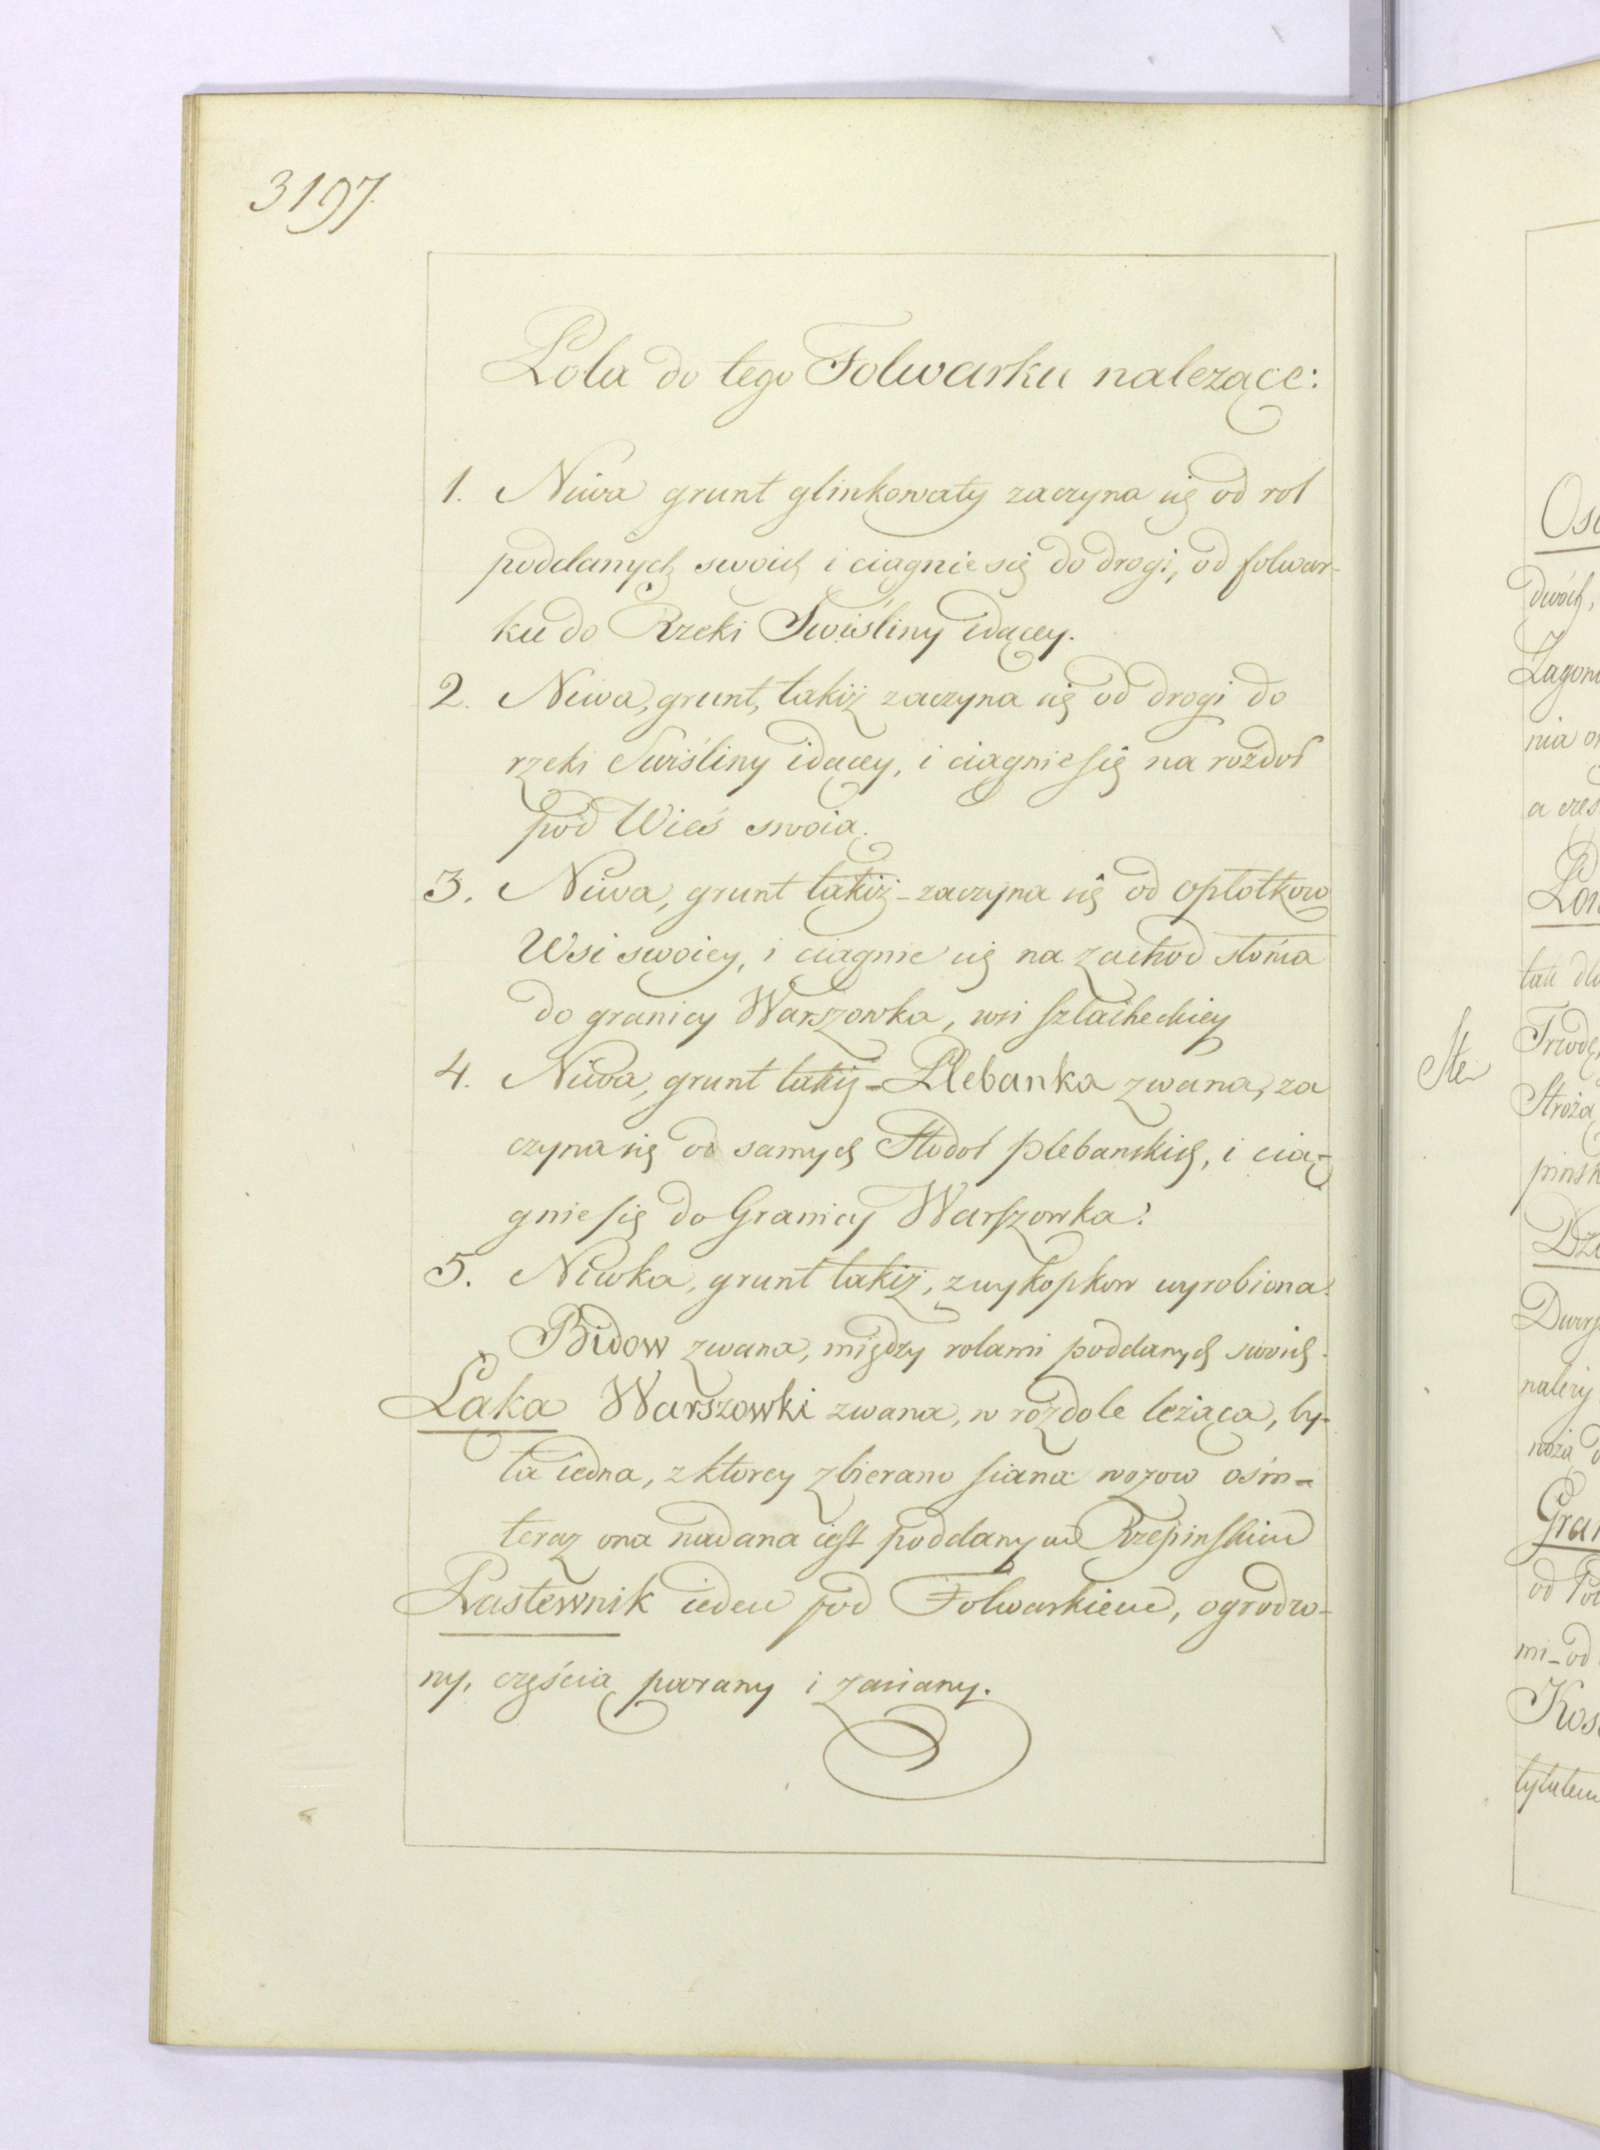 3197.
Pola do tego Folwarku należące:
1. Niwa grunt glinkowaty zaczyna się od rol
poddanych swoich i ciągnie się do drogi, od folwar-
ku do Rzeki Swiśliny idącey.
2. Niwa, grunt, takiż zaczyna się od drogi do
rzeki Swiśliny idącey, i ciągnie się na rozdoł
pod Wieś swoią.
3. Niwa, grunt takiż - zaczyna się od opłotkow
Wsi swoiey, i ciągnie się na zachod słońca
do granicy Warszowka, wsi szlacheckiey
4. Niwa, grunt takiż - Plebanka zwana, za
czyna się od samych Stodoł plebanskich, i cią-
gnie się do Granicy Warszowka.
5. Niwka, grunt takiż, z wykopkow wyrobiona.
Bidow zwana, między rolami poddanych swoich.
Łąka Warszowki zwana, w rozdole leżąca, by-
ła iedna, z ktorey zbierano siana wozow ośm -
teraz ona nadana iest poddanym Rzepinskim
Pastewnik ieden pod Folwarkiem, ogrodzo-
ny, częścią poorany i zasiany.
Ste
dwóch,
nia
a
tak
Stroża
Kos
tytułem